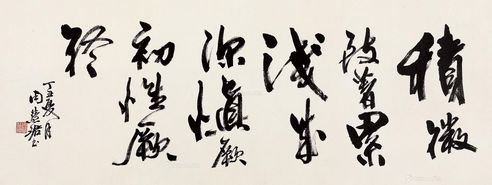 積微
致著累
淺成
深慎厥
初惟厥
終
丁丑夏月
周慧珺书